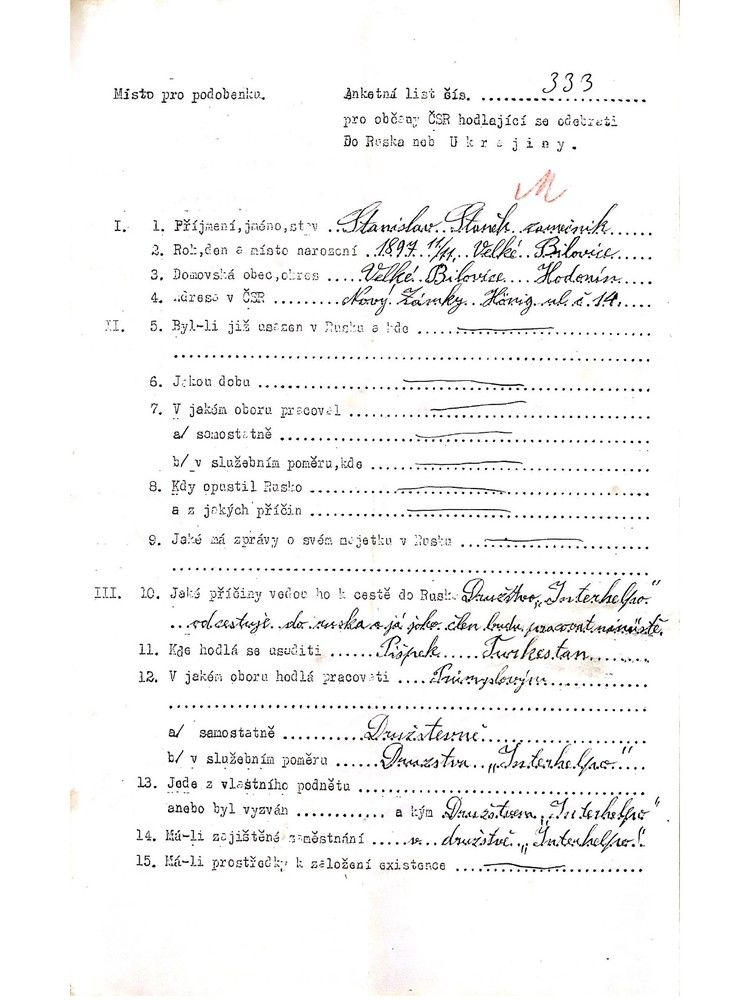 Místo pro podobenku.
Anketní list čís. 333
pro občany ČSR hodlající se odebrati
Do Ruska neb Ukrajiny.
I. 1. Příjmení,jméno,stav ..Stanislav Staněk zámečník
2. Rok,den a místo narození .1897 11/11. Velké Bilovice
3. Domovská obec,okres ...Velké Bilovice....Hodonín....
4. Adresa v ČSR .........Nový Zámky Hönig ul. č 14.
II. 5. Byl-li již usazen v Rusku a kde
6. Jakou dobu
7. V jakém oboru pracoval
a/ samostatně
b/ v služebním poměru,kde
8. Kdy opustil Rusko
a z jakých příčin
9. Jaké má zprávy o svém majetku v Rusku
III. 10. Jaké příčiny vedou ho k cestě do Ruska Družstvo „Interhelpo"
...odcestuje do ruska a já jako člen budu pracovat
11. Kde hodlá se usaditi ......Pišpek.....Turkestan........
12. V jakém oboru hodlá pracovati ....Průmyslovým
a/ samostatně ..........Družstevně
b/ v služebním poměru ......Druzstva „Interhelpo"....
13. Jede z vlastního podnětu
anebo byl vyzván ............ a kým Družstvem „Interhelpo"
14. Má-li zajištěné zaměstnání .....v družstvě „Interhelpo."
15. Má-li prostředky k založení existence